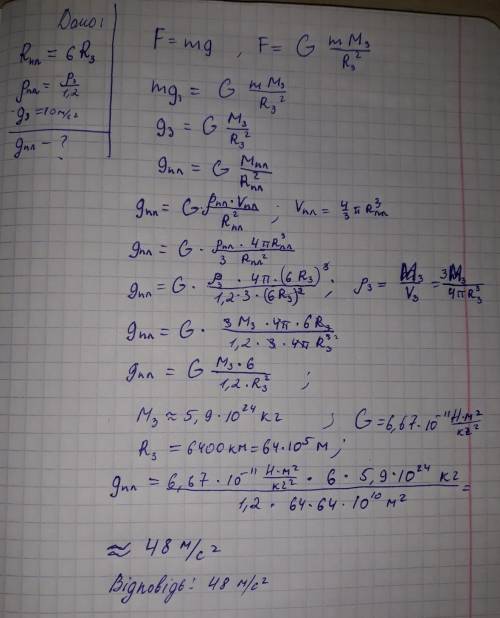 Дано:
Rпл = 6 Rз
ρпл = ρз/1,2
gз = 10 м/с²
gпл - ?
F = mg , F = G mMз/Rз²
mgз = G mMз/Rз²
gз = G Mз/Rз²
gпл = G Mпл/Rпл²
gпл = G · ρпл · Vпл/Rпл² ; Vпл = 4/3 π Rпл³
gпл = G · ρпл · 4πRпл³/3 Rпл²
gпл = G · ρз · 4π · (6Rз)³/1,2 · 3 · (6Rз)² ; ρз = Mз/Vз = 3Mз/4πRз³
gпл = G · 3Mз · 4π · 6Rз/1,2 · 3 · 4πRз³
gпл = G Mз · 6/1,2 · Rз² ;
Mз ≈ 5,9 · 10²⁴ кг ; G = 6,67 · 10⁻¹¹ Н·м²/кг²
Rз = 6400 км = 64 · 10⁵ м ;
gпл = 6,67 · 10⁻¹¹ Н·м²/кг² · 6 · 5,9 · 10²⁴ кг/1,2 · 64 · 64 · 10¹⁰ м² =
≈ 48 м/с²
Відповідь: 48 м/с²